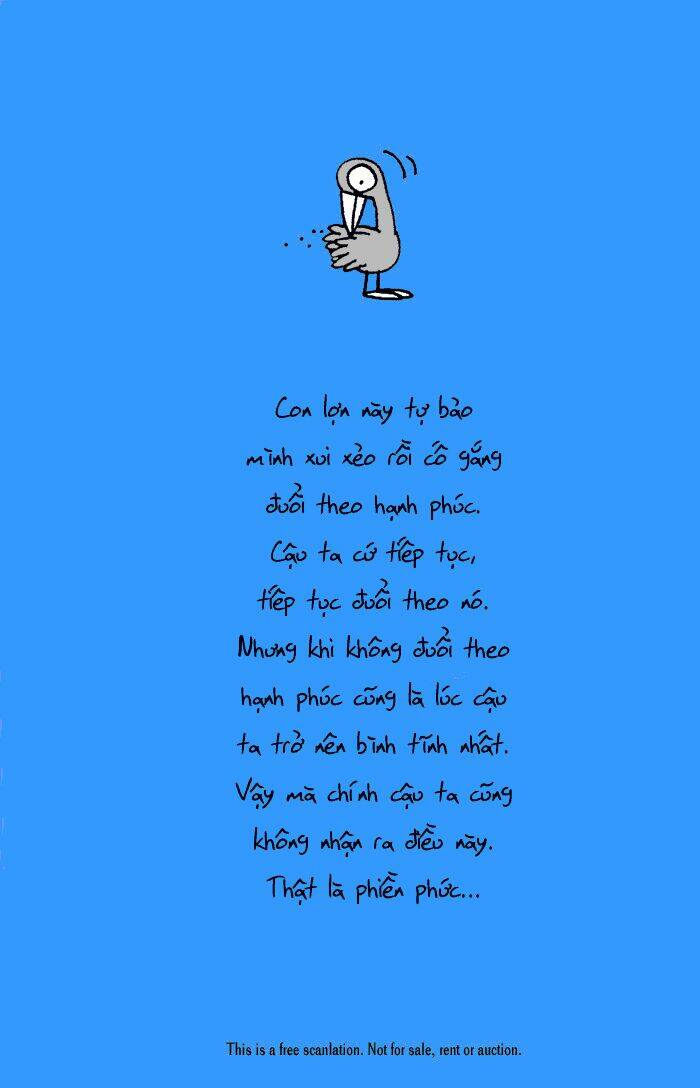 Con lợn này tự bảo
mình xui xẻo rồi cố gắng
đuổi theo hạnh phúc.
Cậu ta cứ tiếp tục,
tiếp tục đuổi theo nó.
Nhưng khi không đuổi theo
hạnh phúc cũng là lúc cậu
ta trở nên bình tĩnh nhất.
Vậy mà chính cậu ta cũng
không nhận ra điều này.
Thật là phiền phức...
This is a free scanlation. Not for sale, rent or auction.